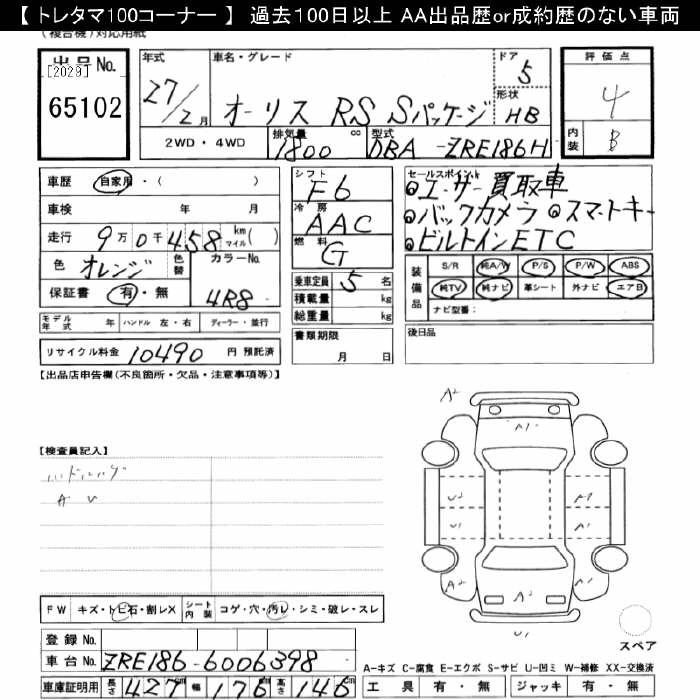 【 トレタマ100コーナー 】 過去100日以上 AA出品歴or成約歴のない車両
(複合機)対応用紙
出品 No.
[2029]
65102
年式
27/2月
車名・グレード
オーリス RS Sパッケージ
ドア
5
形状
HB
評価点
4
内装
B
2WD・4WD
排気量
1800 cc
型式
DBA-ZRE186H
車歴 自家用・( )
車検 年 月
走行 9万0千458 km マイル( )
色 オレンジ 色替
カラーNo.
4R8
保証書 有・無
モデル年式 年 ハンドル 左・右 ディーラー・並行
リサイクル料金 10490 円 預託済
シフト
F6
冷房
AAC
燃料
G
乗車定員 5 名
積載量 kg
総重量 kg
書類期限
月 日
セールスポイント
ユーザー買取車
バックカメラ スマートキー
ビルトインETC
装備品
S/R 純A/W P/S P/W ABS
純TV 純ナビ 革シート 外ナビ エアB
ナビ型番:
後日品
【出品店申告欄(不良箇所・欠品・注意事項等)】
【検査員記入】
ハンドルハゲ
A U
A2
A1
U2
A1
U1
A1
A2
A2
A1
U1
スペア
FW キズ・トビ石・割レX
シート内装 コゲ・穴・汚レ・シミ・破レ・スレ
登録 No.
車台 No. ZRE186-6006398
車庫証明用 長さ 427 cm 幅 176 cm 高さ 146 cm
A-キズ C-腐食 E-エクボ S-サビ U-凹ミ W-補修 XX-交換済
工具 有・無 ジャッキ 有・無